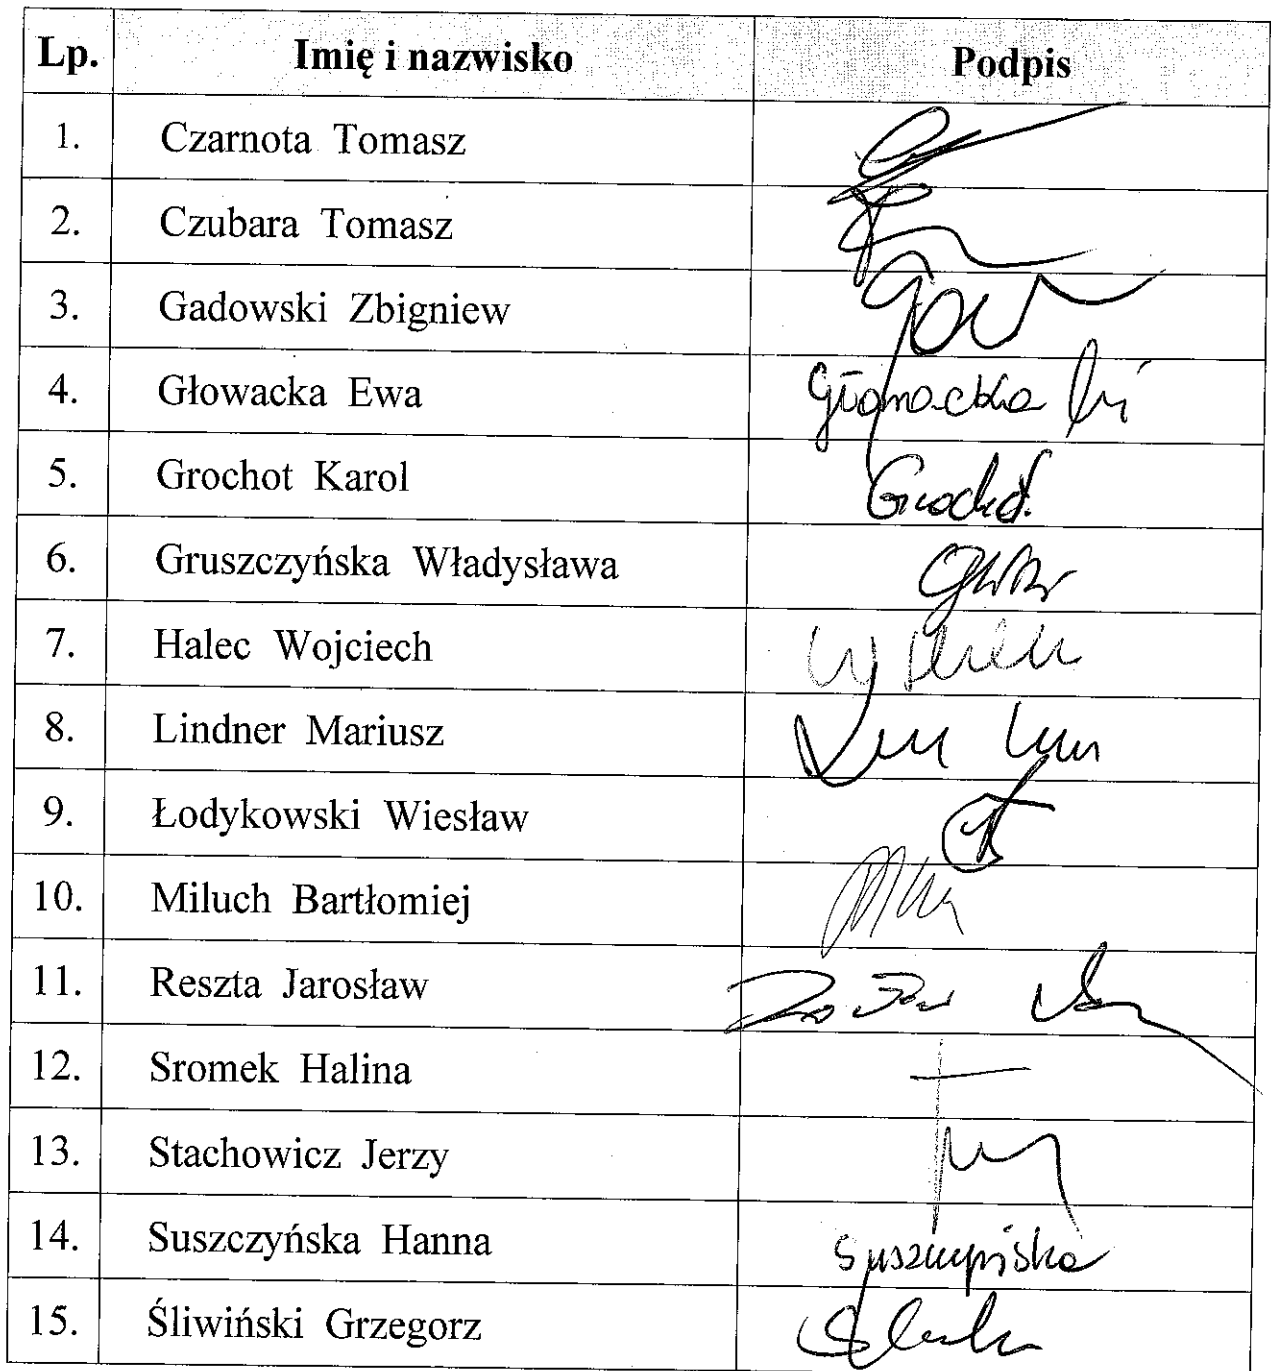 Lp. Imię i nazwisko Podpis
1. Czarnota Tomasz
2. Czubara Tomasz
3. Gadowski Zbigniew
4. Głowacka Ewa Głowacka
5. Grochot Karol Grochot
6. Gruszczyńska Władysława
7. Halec Wojciech
8. Lindner Mariusz
9. Łodykowski Wiesław
10. Miluch Bartłomiej
11. Reszta Jarosław
12. Sromek Halina —
13. Stachowicz Jerzy
14. Suszczyńska Hanna Suszczyńska
15. Śliwiński Grzegorz